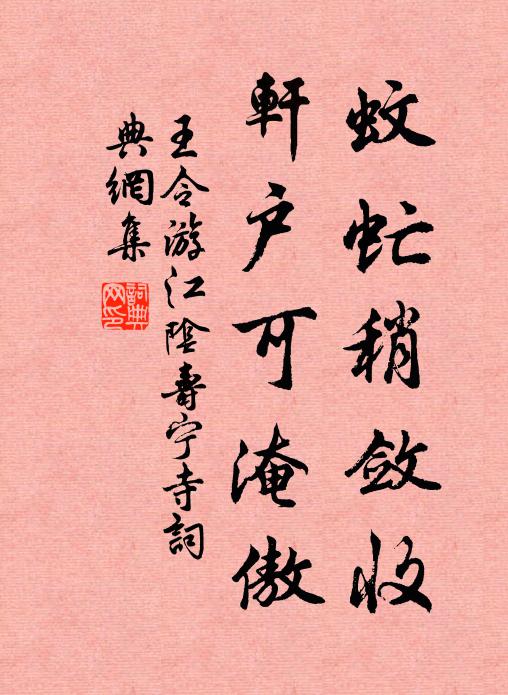 蚊虻稍斂收
軒户可淹傲
王令游江陰壽宁寺詞
典網集
詞典网印